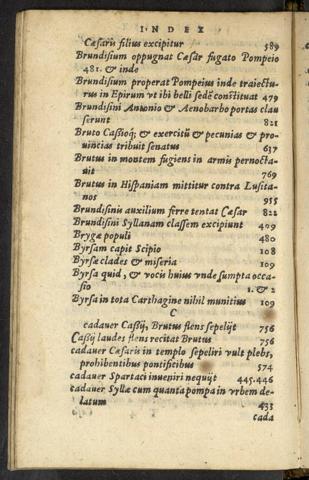 INDEX
Cæsaris filius excipitur 589
Brundisium oppugnat Cæsar fugato Pompeio
481. & inde
Brundisium properat Pompeius inde traiectu-
rus in Epirum vt ibi belli sedē cōstituat 479
Brundisini Antonio & Aenobarbo portas clau
serunt 821
Bruto Cassioq; & exercitū & pecunias & pro-
uincias tribuit senatus 637
Brutus in montem fugiens in armis pernocta-
uit 769
Brutus in Hispaniam mittitur contra Lusita-
nos 955
Brundisinis auxilium ferre tentat Cæsar 822
Brundisini Syllanam classem excipiunt 409
Brygæ populi 480
Byrsam capit Scipio 108
Byrsæ clades & miseria 109
Byrsa quid, & vocis huius vnde sumpta occa-
sio 1. & 2
Byrsa in tota Carthagine nihil munitius 109
C
cadauer Cassij, Brutus flens sepelijt 756
Cassij laudes flens recitat Brutus 756
cadauer Cæsaris in templo sepeliri vult plebs,
prohibentibus pontificibus 574
cadauer Spartaci inueniri nequijt 445.446
cadauer Syllæ cum quanta pompa in vrbem de-
latum 435
cada